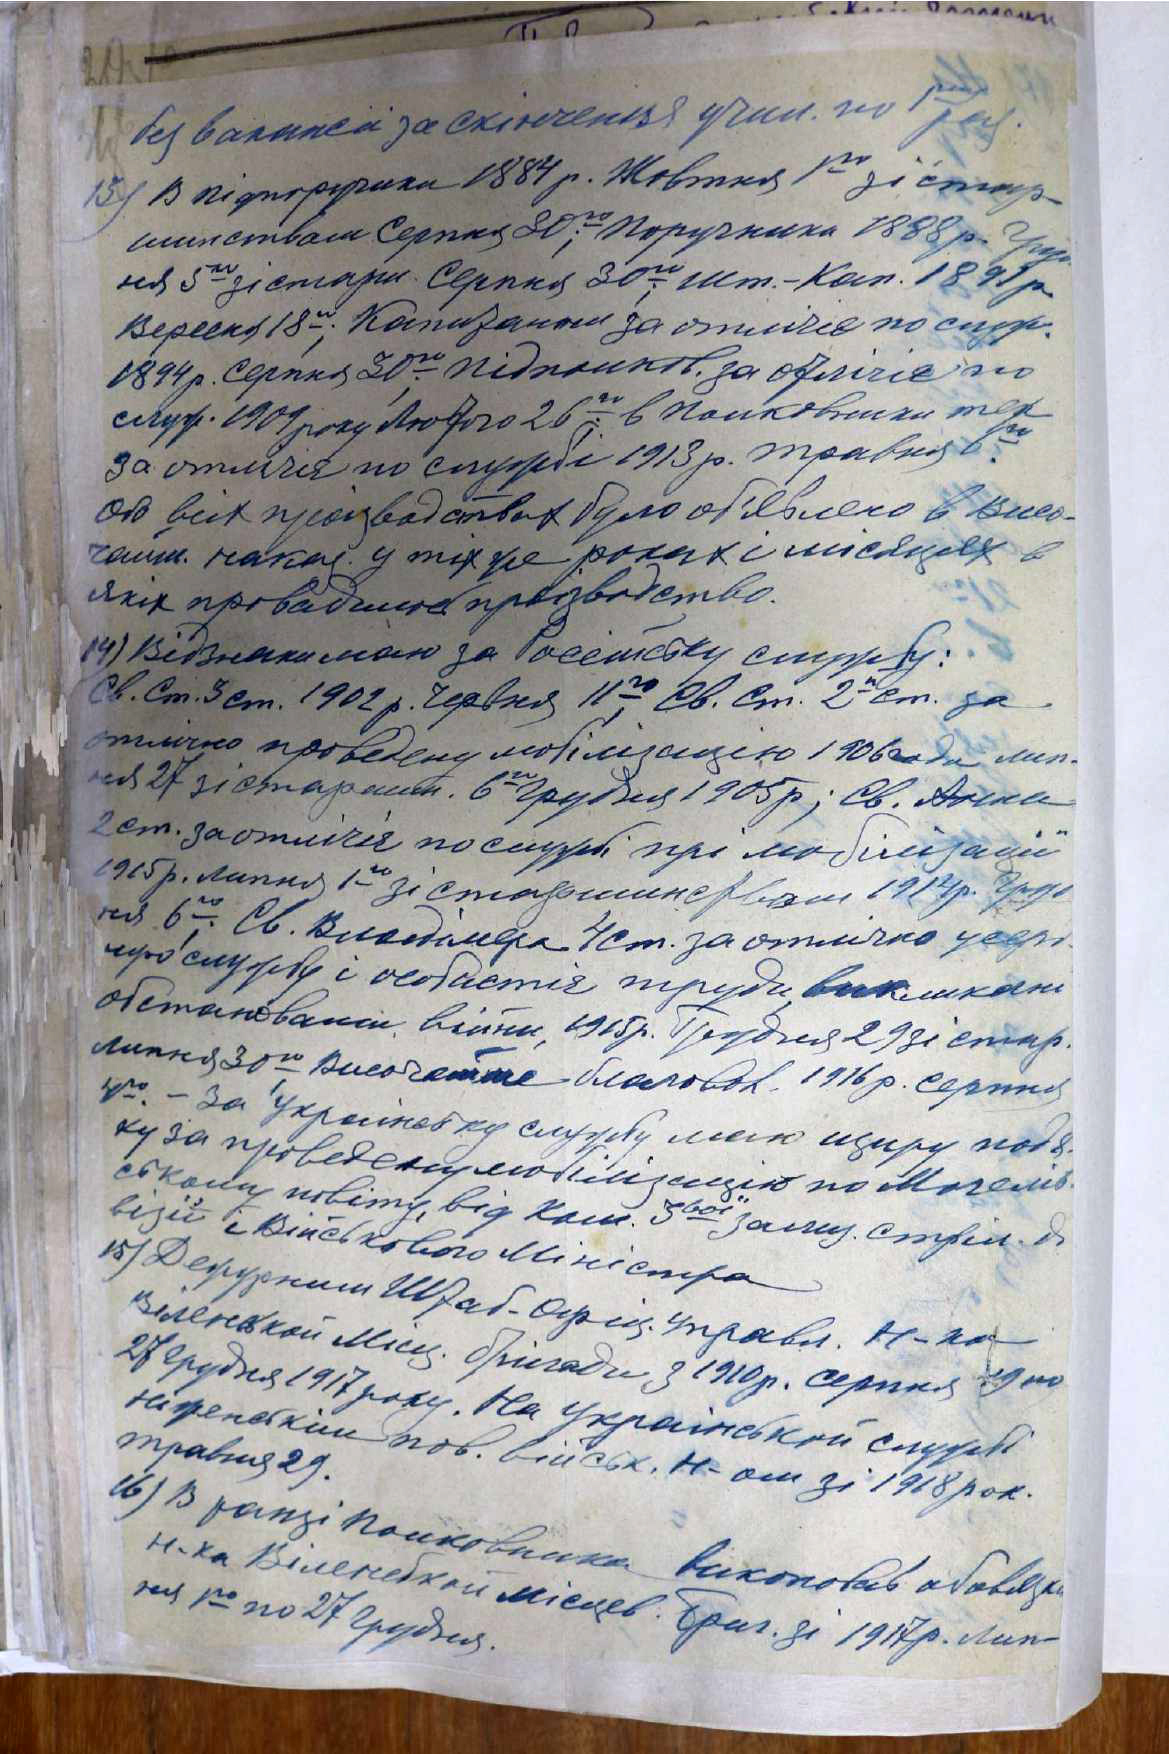 без вакансій за скінчення учил. по 1му раз.
13) В підпоручики 1884 р. Жовтня 1го зі стар-
шинством Серпня 30го; Поручника 1888 р. Груд
ня 5го зі старш. Серпня 30го; Шт.-Кап. 1891 р
Вересня 18го; Капитаном за отлічіє по служ.
1894 р. Серпня 30го; Підполков. за отлічіє по
служ. 1909 року Лютого 26го в Полковники теж
за отлічія по службі 1913 р. травня 6го.
Об всіх произвадствах було об'явлено в Висо-
чайш. наказ. у тіх же роках і місяцях в
якіх провадилось производство.
14) Відзнаки маю за Россійську службу:
Св. Ст. 3 ст. 1902 р. Червня 11го, Св. Ст. 2й ст. за
отлічно проведену мобілізацію 1906 года лип-
ня 27 зі старшин. 6го Грудня 1905 р; Св. Анни
2 ст. за отлічія по службі прі мобілізації
1915 р. липня 1го зі старшинством 1914 р. Груд
ня 6го; Св. Владімера 4 ст. за отлічно усерд.
службу і особистія труди, викликани
обстановкою війни, 1915 р. Грудня 29 зі стар.
липня 30го Височайше благовол. 1916 р. серпня
4го. – За Українську службу маю щиру подя-
ку за проведену мобілізацію по Могелів-
ському повіту, від Ком. 3вої зализ. стріл. ди
візії і Військового Міністра
15) Дежурним Штаб-Офіц. Управл. Н-ка
Віленской Місц. бригади з 1910 р. серпня 19 по
27 Грудня 1917 року. На Українськой службі
пов. військ. Н-ом зі 1918 рок.
травня 29.
16) В ранзі Полковника виконовав обовязки
Н-ка Віленской місцев. Бриг. зі 1917 р. Лип-
ня 1го по 27 Грудня.